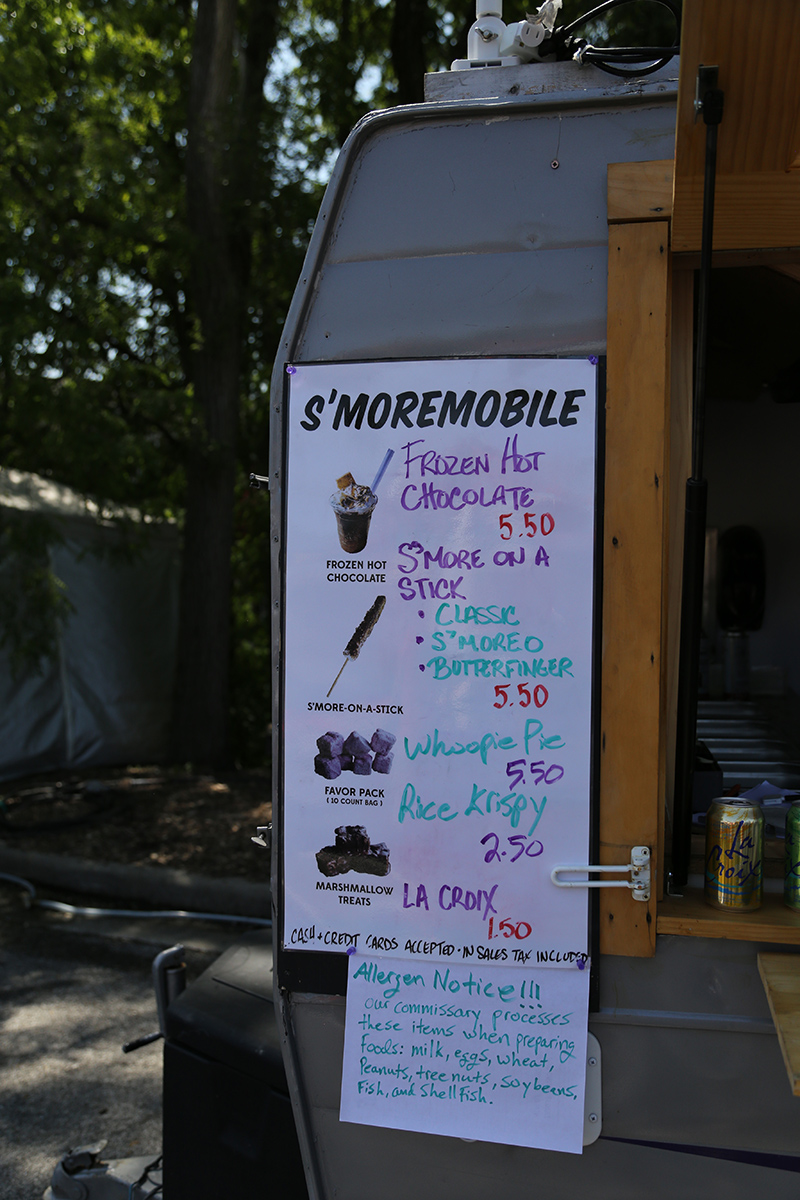 S'MOREMOBILE
FROZEN HOT
CHOCOLATE
5.50
FROZEN HOT
CHOCOLATE
S'MORE ON A
STICK
• CLASSIC
• S'MOREO
• BUTTERFINGER
5.50
S'MORE-ON-A-STICK
Whoopie Pie
5.50
FAVOR PACK
( 10 COUNT BAG )
Rice Krispy
2.50
MARSHMALLOW
TREATS
LA CROIX
1.50
CASH + CREDIT CARDS ACCEPTED • IN SALES TAX INCLUDED
Allergen Notice!!!
Our commissary processes
these items when preparing
Foods: milk, eggs, wheat,
Peanuts, tree nuts, soybeans,
Fish, and Shellfish.
La
Croix